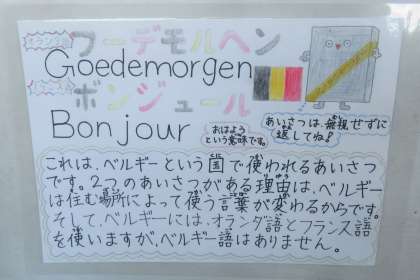 フーデモルヘン
Goedemorgen
ボンジュール
Bonjour
おはよう
という意味です。
あいさつは、無視せずに
返してね!
これは、ベルギーという国で使われるあいさつ
です。2つのあいさつがある理由は、ベルギー
は住む場所によって使う言葉が変わるからです。
そして、ベルギーには、オランダ語とフランス語
を使いますが、ベルギー語はありません。